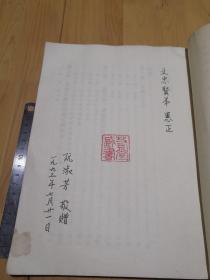 文忠賢弟 惠正
阮淑芳 敬贈
一九九三年七月廿一日